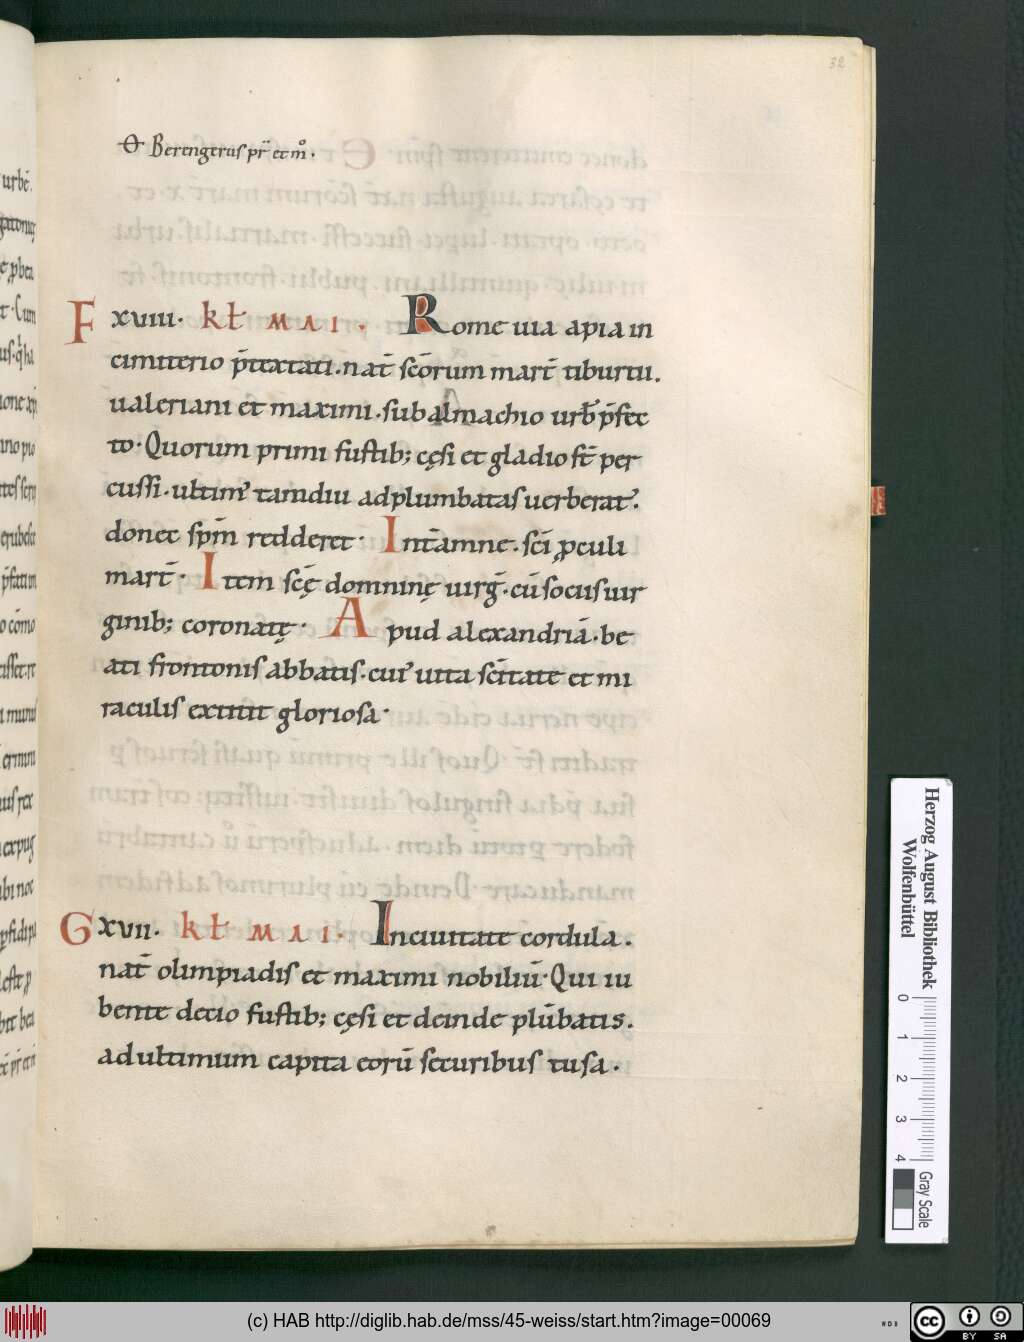 32
Θ Berengerus pr̄ et mo᷎.
F xviii. kł mai. Rome uia apia in
cimiterio p̄textati. nat̄ sc̄orum mart̄ tiburtii.
ualeriani et maximi. sub almachio urƀ p̄fec
to. Quorum primi fustib; cęsi et gladio st̄ per
cussi. ultim᾿ tamdiu ad plumbatas uerberat᾿.
donec sp̄m redderet. Int̄amne. sc̄i ꝓculi
mart̄. Item sc̄ę domninę uirḡ. cū sociis uir
ginib; coronatę. Apud alexandriā. be
ati frontonis abbatis. cui᾿ uita sc̄itate et mi
raculis extitit gloriosa.
G xvii. kł mai. In ciuitate cordula.
nat̄ olimpiadis et maximi nobiliū. Qui iu
bente decio fustib; cęsi et deinde plūbatis.
ad ultimum capita eorū securibus tusa.
Herzog August Bibliothek
Wolfenbüttel
0 1 2 3 4
Gray Scale
(c) HAB http://diglib.hab.de/mss/45-weiss/start.htm?image=00069
cc BY SA